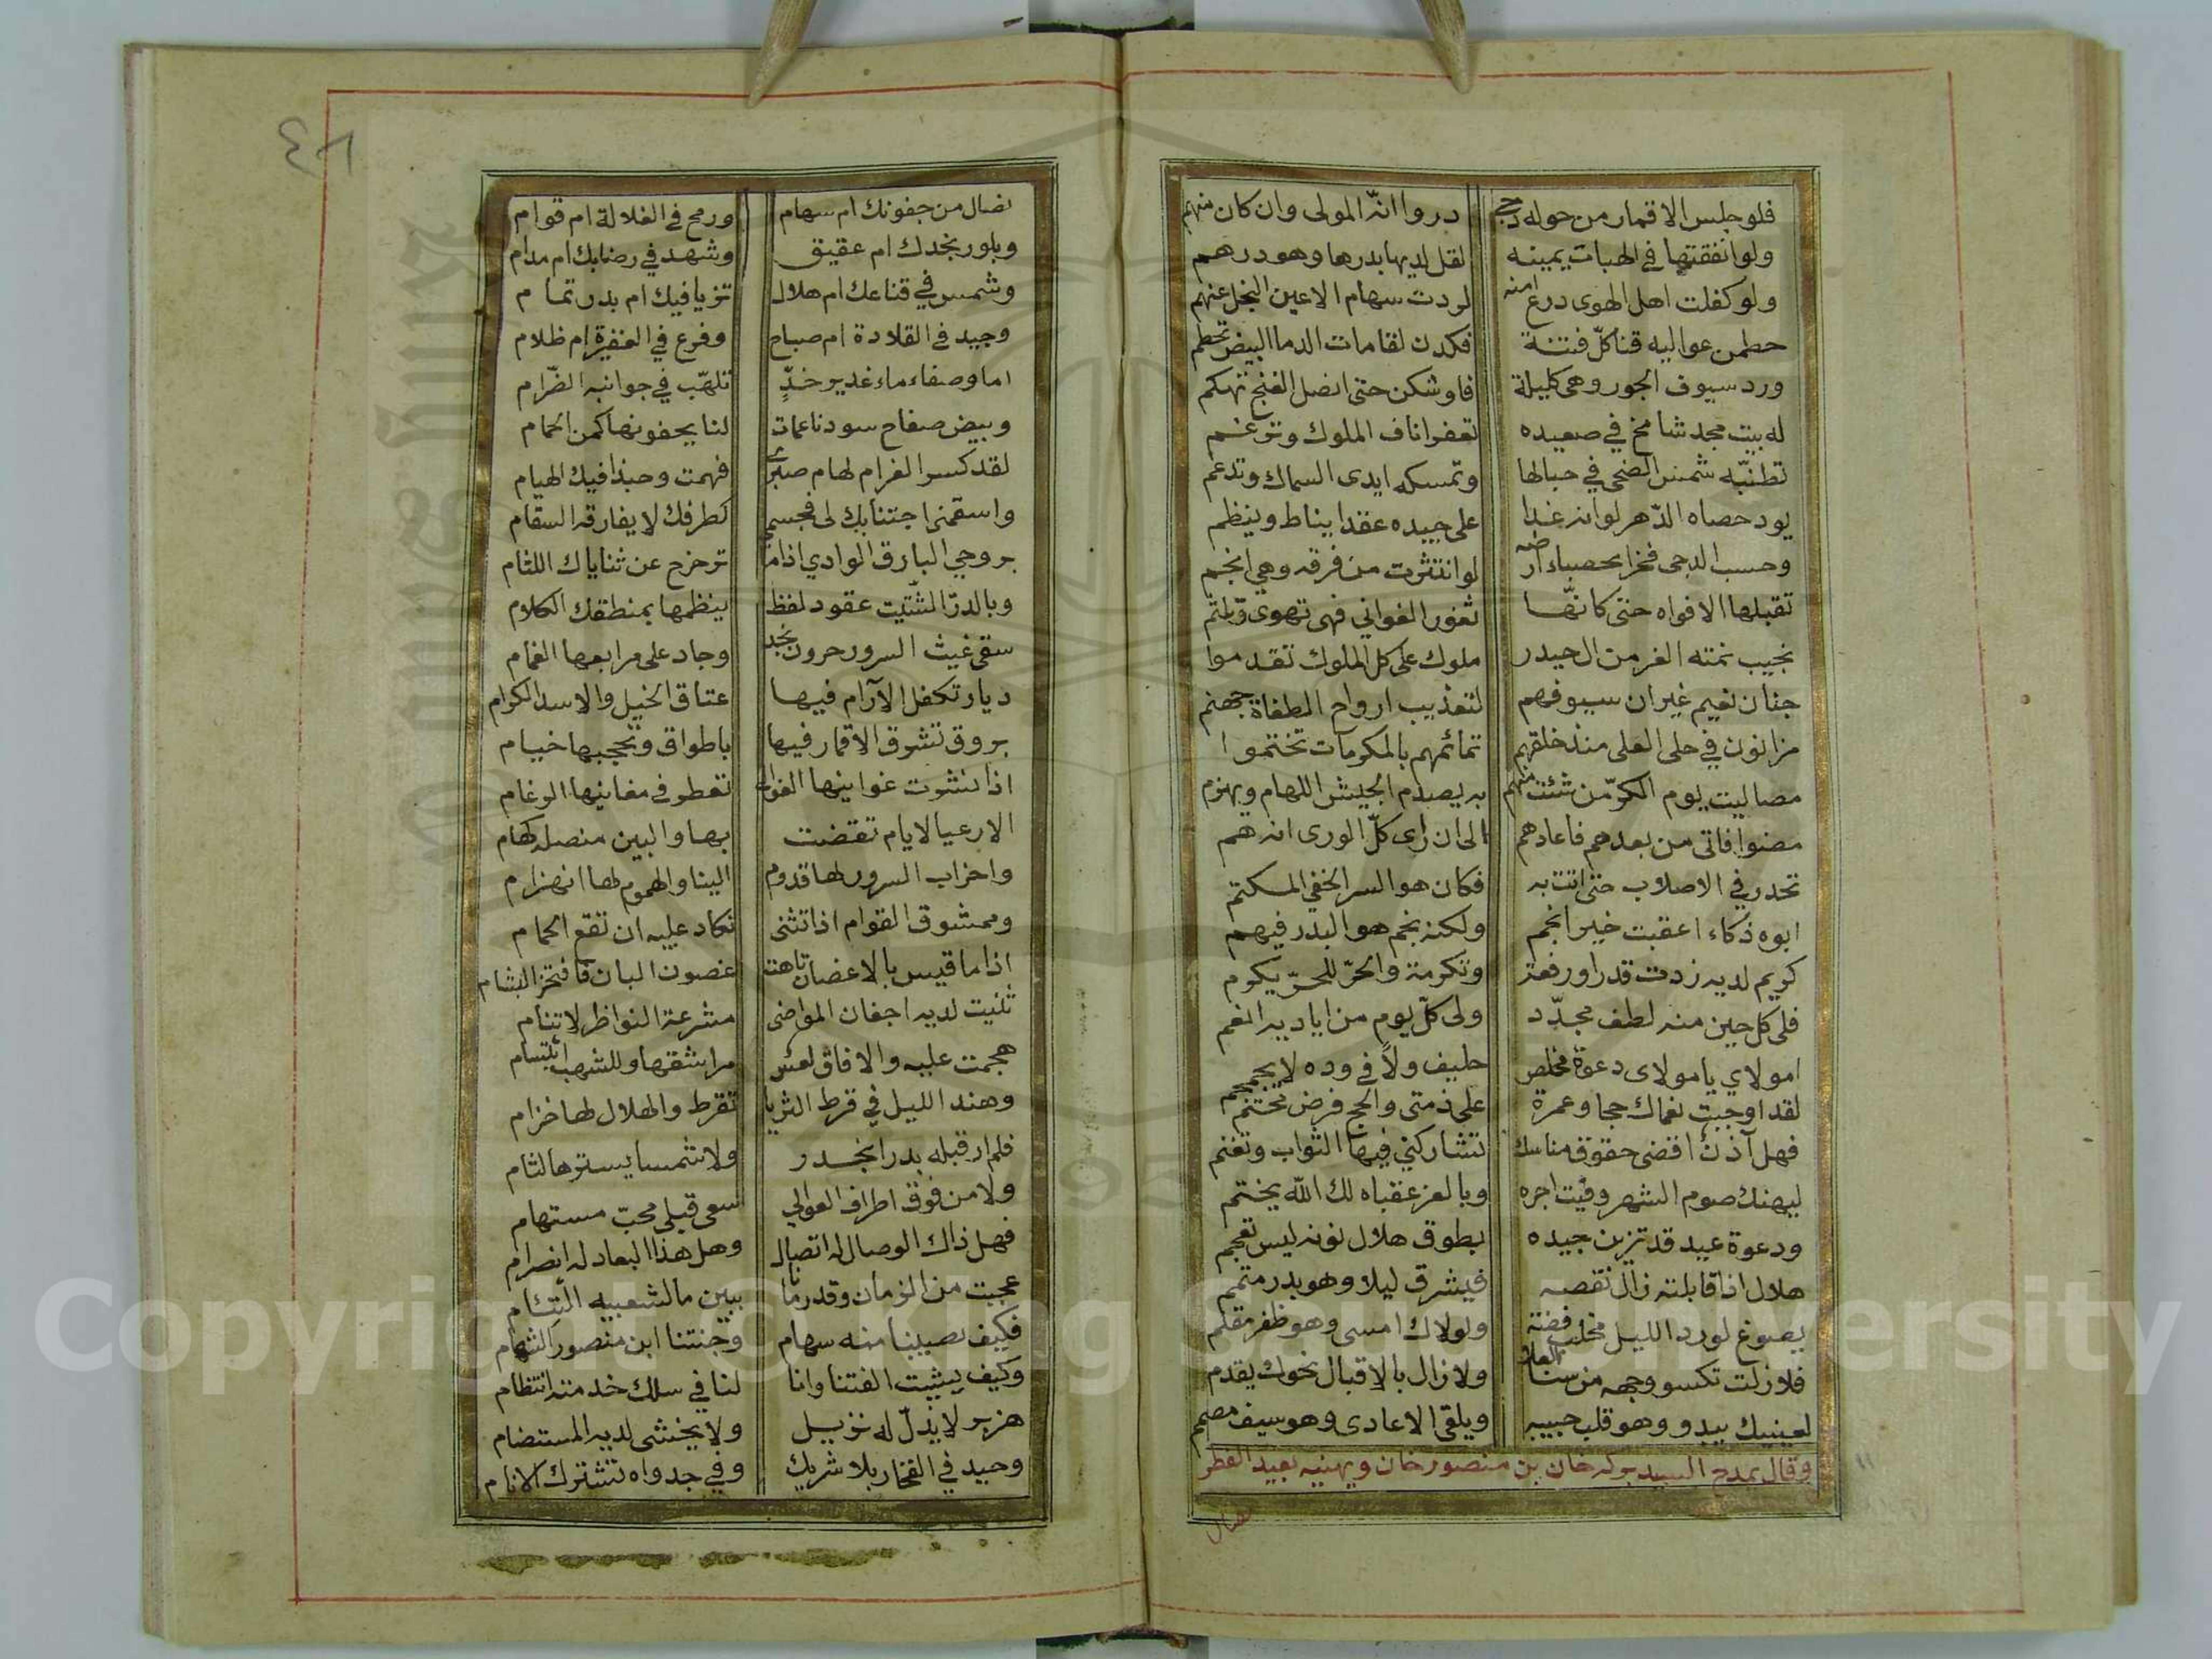 فلو جلس الاقمار من حوله دجى دروا انه المولى وان كان منهم
ولو انفقتها في الهبات يمينه لقل لديها بدرها وهو درهم
ولو كفلت اهل الهوى درع امنه لردت سهام الاعين النجل عنهم
حطمن عواليه قنا كلّ فتنة فكدن لقامات الدما البيض تحطم
ورد سيوف الجور وهي كليلة فاوشكن حتى انصل الغنج تهكم
له بيت مجد شامخ في صعيده تعفر اناف الملوك وترغم
تطنّبه شمس الضحى في حبالها وتمسكه ايدى السماك وتدعم
يود حصاه الدّهر لو انه غدا على جيده عقدا يناط وينظم
وحسب الدجى فخرا بحصباء ارضه لو انتثرت من فرقه وهي انجم
تقبلها الافواه حتى كانّها ثغور الغواني فهي تهوى وتلثم
نجيب نمته الغر من ال حيدر ملوك على كل الملوك تقدموا
جنان نعيم غير ان سيوفهم لتعذيب ارواح الطغاة جهنم
مزانون في حلى العلى منذ خلقهم تمائمهم بالمكرمات تختموا
مصاليت يوم الكرّ من شئت منهم به يصدم الجيش اللهام ويهزم
مضوا فاتى من بعدهم فاعادهم الى ان راى كلّ الورى انه هم
تحدر في الاصلاب حتى اتت به فكان هو السر الخفي المكتم
ابوه ذكاء اعقبت خير انجم ولكنه نجم هو البدر فيهم
كريم لديه زدت قدرا ورفعة وتكرمة والحرّ للحرّ يكرم
فلى كل حين منه لطف مجدّد ولى كلّ يوم من اياديه انعم
امولاي يا مولاى دعوة مخلص حليف ولاً في وده لا يجمجم
لقد اوجبت نعماك حجا وعمرة على ذمتى والحج فرض محتم
فهل آذنٌ اقضى حقوق مناسك تشاركني فيها الثواب وتغنم
ليهنك صوم الشهر وفيت اجره وبالعز عقباه لك الله يختم
ودعوة عيد قد تزين جيده بطوق هلال نونه ليس تعجم
هلال اذا قابلته زال نقصه فيشرق ليلا وهو بدر متمم
يصوغ لورد الليل مخلب فضة ولولاك امسى وهو ظفر مقلم
فلا زلت تكسو وجهه من سنا العلا ولا زال بالاقبال نحوك يقدم
لعينيك يبدو وهو قلب حبيبه ويلقى الاعادى وهو سيف مصمم
وقال يمدح السيد بركه خان بن منصور خان ويهنيه بعيد الفطر
نصال
٤٦
نصال من جفونك ام سهام ورمح في الغلالة ام قوام
وبلور بخدك ام عقيق وشهد في رضابك ام مدام
وشمس في قناعك ام هلال تزيا فيك ام بدر تمام
وجيد في القلادة ام صباح وفرع في الغفيرة ام ظلام
اما وصفاء ماء غدير خدٍّ تلهّب في جوانبه الضّرام
وبيض صفاح سود ناعمات لنا يجفونها كمن الحمام
لقد كسر الغرام لهام صبرى فهمت وحبذا فيك الهيام
واسقمنى اجتنابك لى فجسمى كطرفك لا يفارقه السقام
بروحي البارق الوادي اذا ما تزحزح عن ثناياك اللثام
وبالدرّ الشّتيت عقود لفظ ينظمها بمنطقك الكلام
سقى غيث السرور حرون نجد وجاد على مرابعها الغمام
ديار تكفل الآرام فيها عتاق الخيل والاسد الكرام
بروق تشرق الاقمار فيها باطواق وتحجبها خيام
اذا نشرت غوانيها الغوالى تعطر في مغانيها الرغام
الا رعيا لايام تقضت بها والبين منصله كهام
واحزاب السرور لها قدوم الينا والهموم لها انهزام
وممشوق القوام اذا تثنى تكاد عليه ان تقع الحمام
اذا ما قيس بالاغصان تاهت غصون البان فافتخر البشام
ثنيت لديه اجفان المواضى مشرعة النواظر لا تنام
هجمت عليه والافاق لعس مراشفها وللشهب ابتسام
وهند الليل في قرط الثريا تقرط والهلال لها خزام
فلم ار قبله بدرا بخدر ولا شمسا يسترها لثام
ولا من فوق اطراف العوالي سعى قبلى محبّ مستهام
فهل ذاك الوصال له اتصال وهل هذا البعاد له انصرام
عجبت من الزمان وقد رمانا ببين ما لشعبيه التئام
فكيف تصيبنا منه سهام وجنتنا ابن منصور الشهام
وكيف يشيت الفتنا وانا لنا في سلك خدمته انتظام
هزبر لا يذلّ له نزيل ولا يخشى لديه المستضام
وحيد في الفخار بلا شريك وفي جدواه تشترك الانام